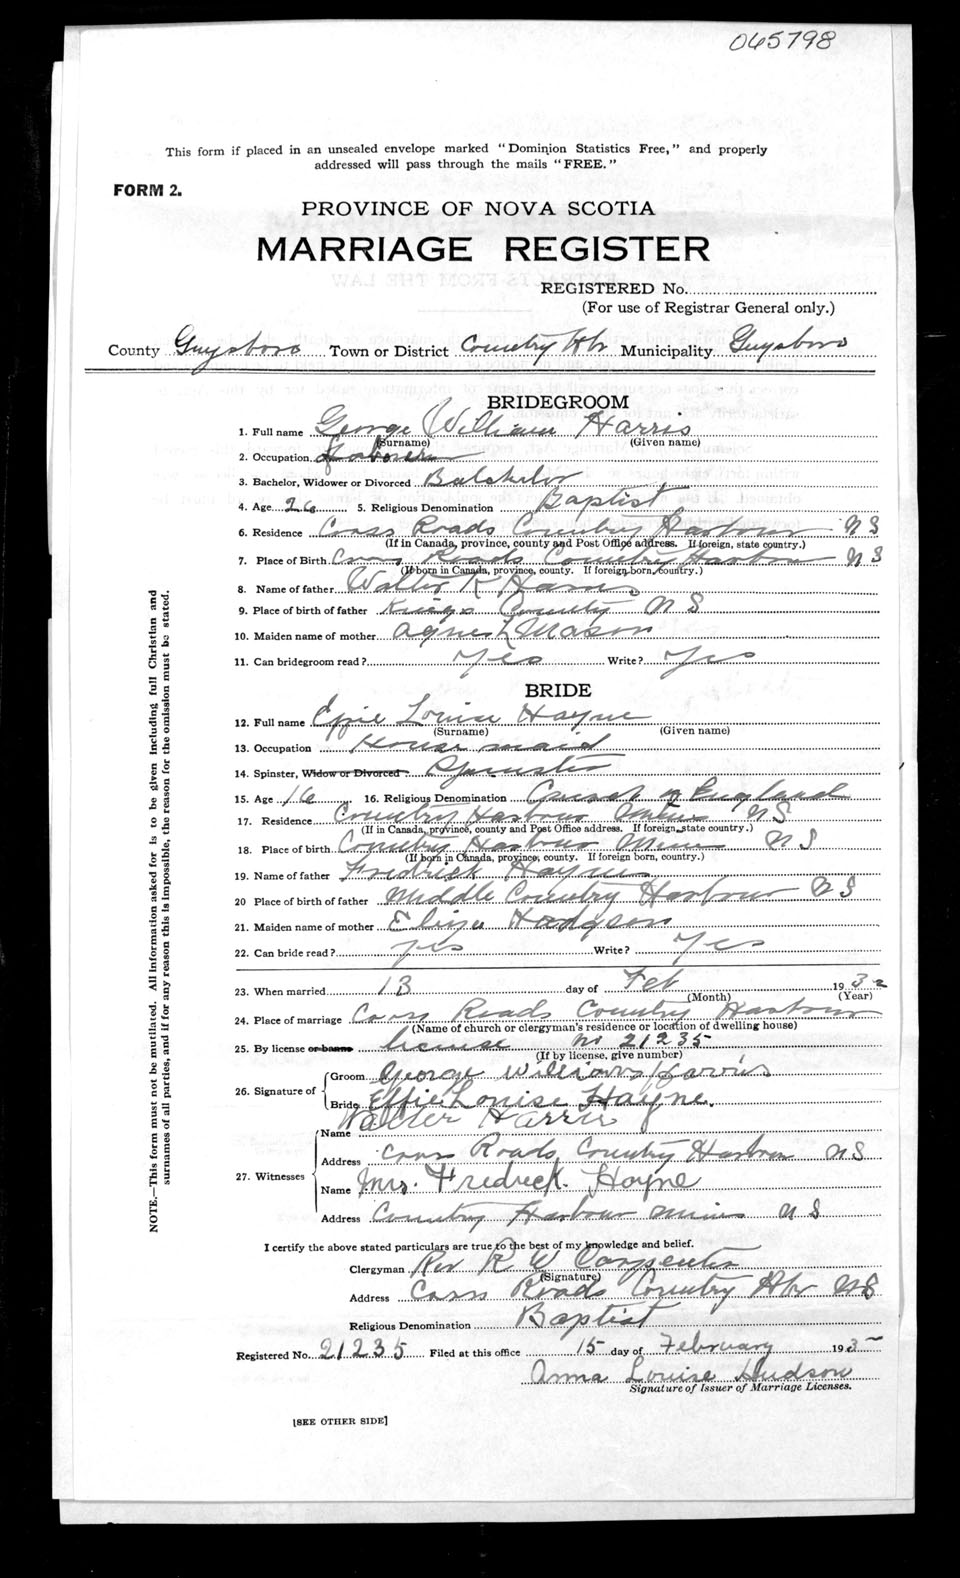 065798
This form if placed in an unsealed envelope marked "Dominion Statistics Free," and properly
addressed will pass through the mails "FREE."
FORM 2.
PROVINCE OF NOVA SCOTIA
MARRIAGE REGISTER
REGISTERED No.
(For use of Registrar General only.)
County Guysboro Town or District Country Hbr Municipality Guysboro
BRIDEGROOM
1. Full name George William Harris
(Surname) (Given name)
2. Occupation Laborer
3. Bachelor, Widower or Divorced Batchelor
4. Age 26 5. Religious Denomination Baptist
6. Residence Cross Roads Country Harbour N S
(If in Canada, province, county and Post Office address. If foreign, state country.)
7. Place of Birth Cross Roads Country Harbour N S
(If born in Canada, province, county. If foreign born, country.)
8. Name of father Walter R Harris
9. Place of birth of father Kings County N S
10. Maiden name of mother Agnes L Mason
11. Can bridegroom read? Yes Write? Yes
BRIDE
12. Full name Effie Louise Hayne
(Surname) (Given name)
13. Occupation House maid
14. Spinster, Widow or Divorced Spinster
15. Age 16 16. Religious Denomination Church of England
17. Residence Country Harbour Mines N S
(If in Canada, province, county and Post Office address. If foreign, state country.)
18. Place of birth Country Harbour Mines N S
(If born in Canada, province, county. If foreign born, country.)
19. Name of father Fredrick Hayne
20 Place of birth of father Middle Country Harbour N S
21. Maiden name of mother Eliza Hodgson
22. Can bride read? yes Write? Yes
23. When married 13 day of Feb 1932
(Month) (Year)
24. Place of marriage Cross Roads Country Harbour
(Name of church or clergyman's residence or location of dwelling house)
25. By license or banns license No 21235
(If by license, give number)
26. Signature of Groom George William Harris
Bride Effie Louise Hayne.
27. Witnesses Name Walter Harris
Address Cross Roads Country Harbour N S
Name Mrs. Fredrick Hayne
Address Country Harbour Mines N S
I certify the above stated particulars are true to the best of my knowledge and belief.
Clergyman Rev R W Carpenter
(Signature)
Address Cross Roads Country Hbr N S
Religious Denomination Baptist
Registered No. 21235 Filed at this office 15 day of February 1932
Anna Louise Hudson
Signature of Issuer of Marriage Licenses.
[SEE OTHER SIDE]
NOTE.—This form must not be mutilated. All information asked for is to be given including full Christian and
surnames of all parties, and if for any reason this is impossible, the reason for the omission must be stated.